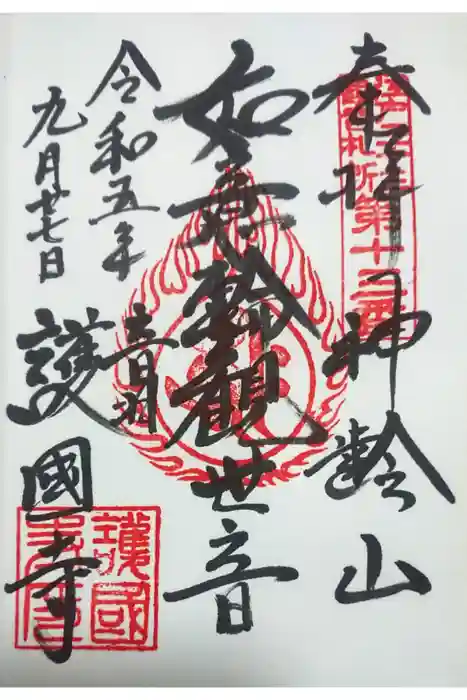 奉拝 神齢山
如意輪觀世音
令和五年
九月廿七日
音羽
護國寺
札所第十三番
護國